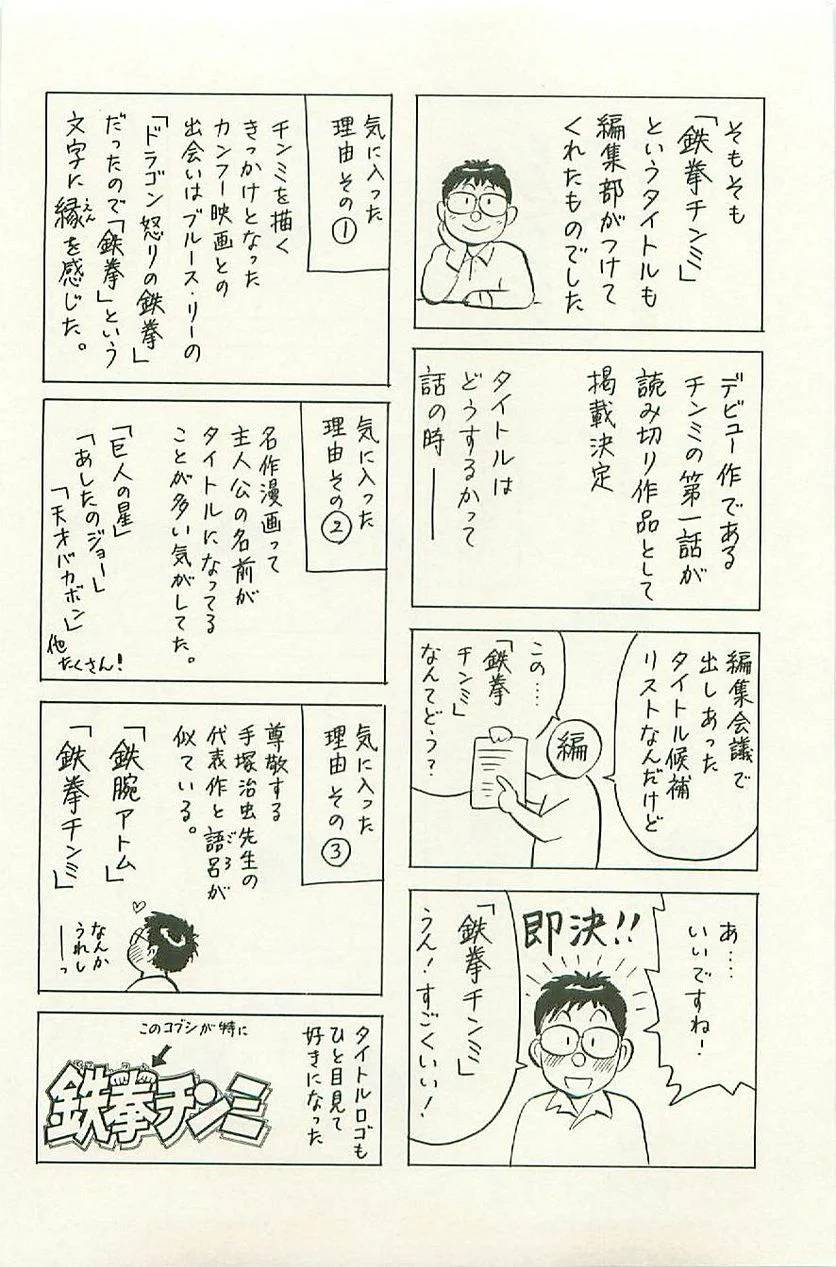 そもそも
「鉄拳チンミ」
というタイトルも
編集部がつけて
くれたものでした
デビュー作である
チンミの第一話が
読み切り作品として
掲載決定
タイトルは
どうするかって
話の時――
編集会議で
出しあった
タイトル候補
リストなんだけど
編
この……
「鉄拳
チンミ」
なんてどう？
あ……
いいですね！
即決!!
「鉄拳チンミ」
うん！すごくいい！
気に入った
理由その①
チンミを描く
きっかけとなった
カンフー映画との
出会いはブルース・リーの
「ドラゴン怒りの鉄拳」
だったので「鉄拳」という
文字に縁を感じた。
えん
気に入った
理由その②
名作漫画って
主人公の名前が
タイトルになってる
ことが多い気がしてた。
「巨人の星」
「あしたのジョー」
「天才バカボン」
他
たくさん！
気に入った
理由その③
尊敬する
手塚治虫先生の
代表作と語呂が
ごろ
似ている。
「鉄腕アトム」
「鉄拳チンミ」
なんか
うれし
ーっ
タイトルロゴも
ひと目見て
好きになった
このコブシが特に
鉄拳チンミ